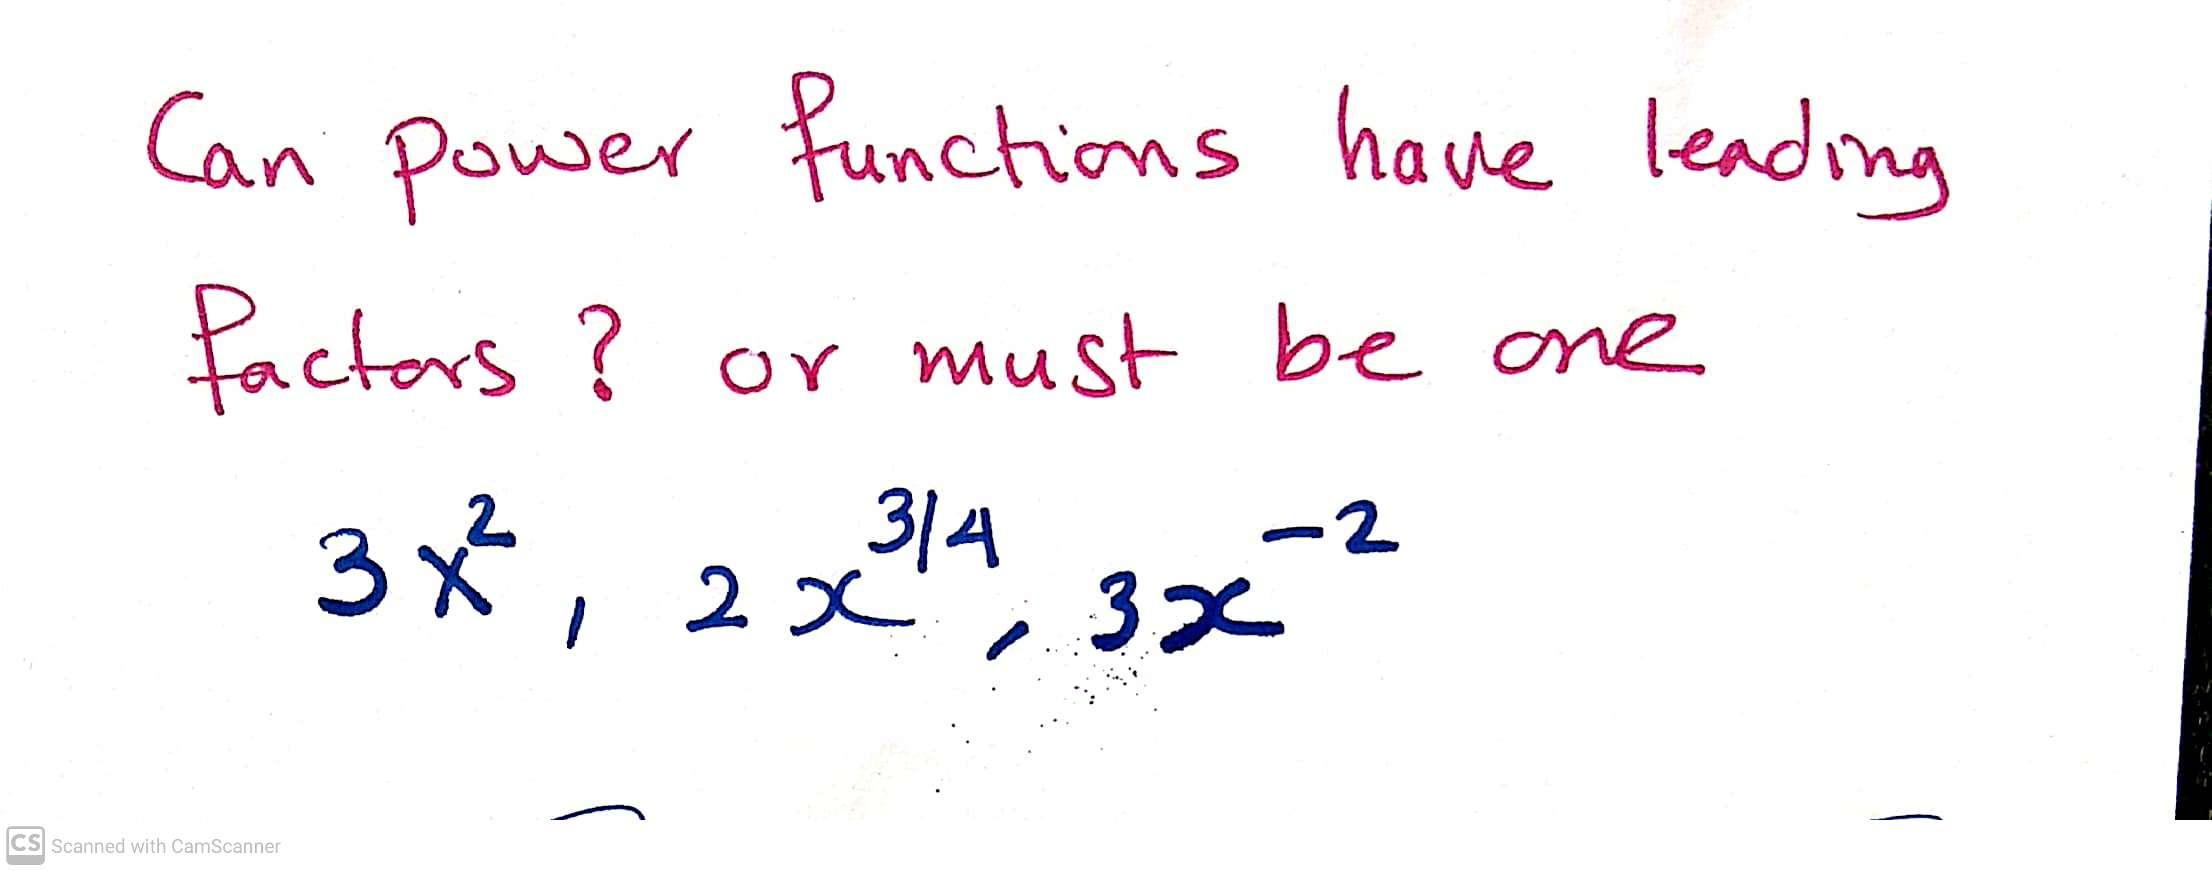 Can power functions have leading
factors ? or must be one
3x², 2x^3/4, 3x^-2
CS Scanned with CamScanner